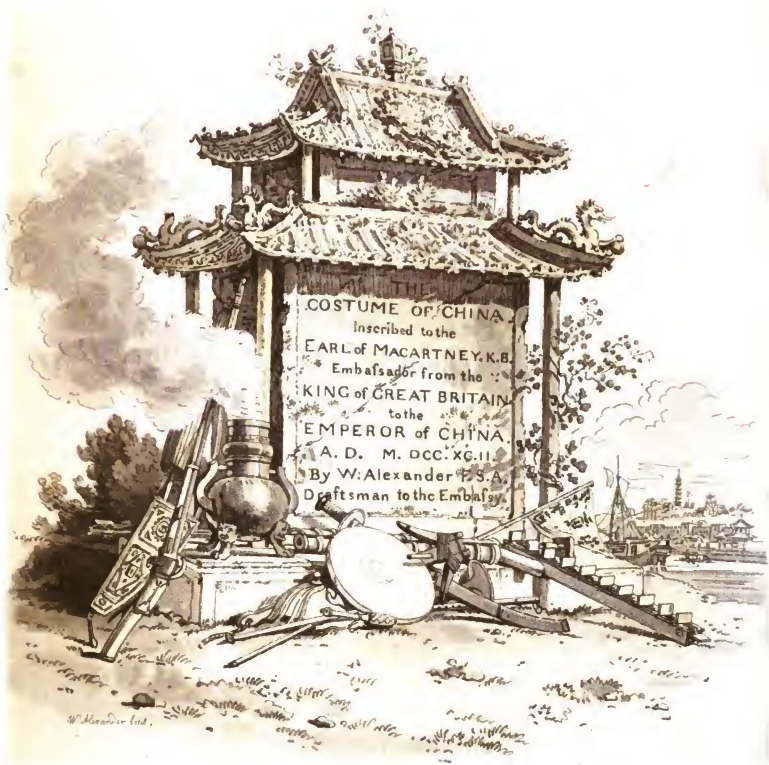 THE
COSTUME OF CHINA.
Inscribed to the
EARL of MACARTNEY, K.B.
Embaſsador from the
KING of GREAT BRITAIN
to the
EMPEROR of CHINA.
A. D. M. DCC. XC. II.
By W: Alexander F. S. A.
Draftsman to the Embaſsy.
W. Alexander fecit.